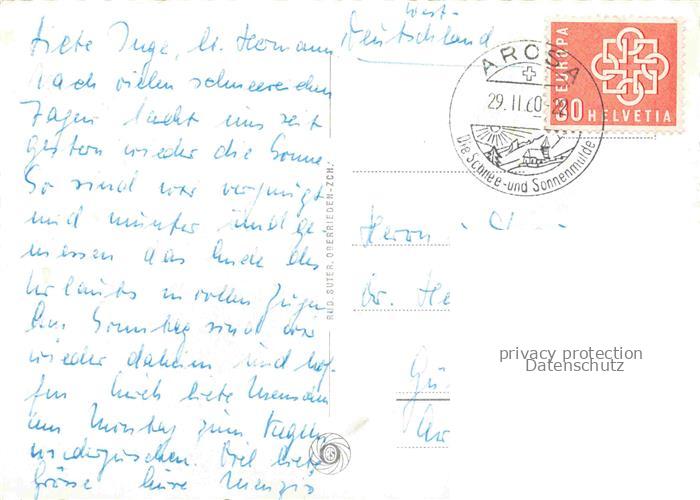 Liebe Inge, lb. Hermann
Nach vielen schneereichen
Tagen lacht uns seit
gestern wieder die Sonne.
So sind wir vergnügt
und munter und ge-
niessen das Ende des
Urlaubs in vollen Zügen
Am Sonntag sind wir
wieder daheim und hof-
fen Euch liebe
am Montag zum Kegeln
wiederzusehen. Viel liebe
Grüsse Eure
West-
Deutschland
AROSA
29.II.60
Die Schnee- und Sonnenmulde
EUROPA
30 HELVETIA
RUD. SUTER, OBERRIEDEN-ZCH.
Herrn
Dr. He
privacy protection
Datenschutz